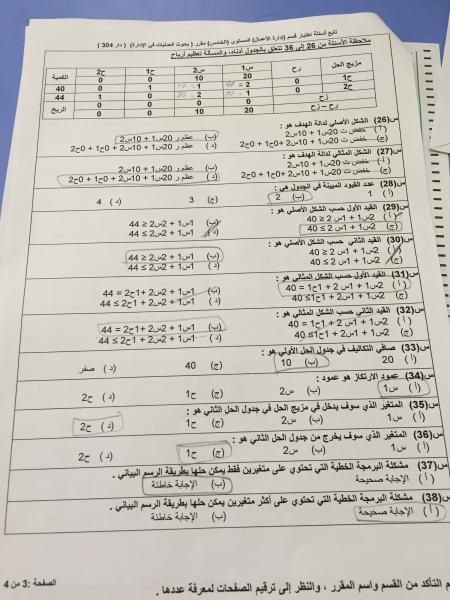 تابع أسئلة اختبار قسم (إدارة الأعمال) المستوى (الخامس) مقرر ( بحوث العمليات في الإدارة) ( دار 304 )
ملاحظة الأسئلة من 26 إلى 36 تتعلق بالجدول أدناه، والمسألة تعظيم أرباح
مزيج الحل رح س1 س2 ح1 ح2 الكمية
20 10 0 0
ح1 0 2 1 1 0 40
ح2 0 1 2 0 1 44
ز ح 0 0 0 0 الربح
رح – زح 20 10 0 0
س(26) الشكل الأصلي لدالة الهدف هو :
( أ ) خفض ت 20س1 + 10س2 (ب) عظم ر 20س1 + 10س2
(ج) خفض ت 20س1 + 10س2 + 0ح1 + 0ح2 ( د ) عظم ر 20س1 + 10س2 + 0ح1 + 0ح2
س(27) الشكل المثالي لدالة الهدف هو :
( أ ) خفض ت 20س1 + 10س2 (ب) عظم ر 20س1 + 10س2
(ج) خفض ت 20س1 + 10س2 + 0ح1 + 0ح2 ( د ) عظم ر 20س1 + 10س2 + 0ح1 + 0ح2
س(28) عدد القيود المبينة في الجدول هي :
( أ ) 1 (ب) 2 (ج) 3 ( د ) 4
س(29) القيد الأول حسب الشكل الأصلي هو :
( أ ) 2س1 + 1س2 ≥ 40 (ب) 1س1 + 2س2 ≥ 44
(ج) 2س1 + 1س2 ≤ 40 ( د ) 1س1 + 2س2 ≤ 44
س(30) القيد الثاني حسب الشكل الأصلي هو :
( أ ) 2س1 + 1س2 ≥ 40 (ب) 1س1 + 2س2 ≥ 44
(ج) 2س1 + 1س2 ≤ 40 ( د ) 1س1 + 2س2 ≤ 44
س(31) القيد الأول حسب الشكل المثالي هو :
( أ ) 2س1 + 1س2 + 1ح1 = 40 (ب) 1س1 + 2س2 + 1ح2 = 44
(ج) 2س1 + 1س2 + 1ح1 ≤ 40 ( د ) 1س1 + 2س2 + 1ح2 ≤ 44
س(32) القيد الثاني حسب الشكل المثالي هو :
( أ ) 2س1 + 1س2 + 1ح1 = 40 (ب) 1س1 + 2س2 + 1ح2 = 44
(ج) 2س1 + 1س2 + 1ح1 ≤ 40 ( د ) 1س1 + 2س2 + 1ح2 ≤ 44
س(33) صافي التكاليف في جدول الحل الأولي هو :
( أ ) 20 (ب) 10 (ج) 40 ( د ) صفر
س(34) عمود الارتكاز هو عمود :
( أ ) س1 (ب) س2 (ج) ح1 ( د ) ح2
س(35) المتغير الذي سوف يدخل في مزيج الحل في جدول الحل الثاني هو :
( أ ) س1 (ب) س2 (ج) ح1 ( د ) ح2
س(36) المتغير الذي سوف يخرج من جدول الحل الثاني هو :
( أ ) س1 (ب) س2 (ج) ح1 ( د ) ح2
س(37) مشكلة البرمجة الخطية التي تحتوي على متغيرين فقط يمكن حلها بطريقة الرسم البياني .
( أ ) الإجابة صحيحة (ب) الإجابة خاطئة
س(38) مشكلة البرمجة الخطية التي تحتوي على أكثر متغيرين يمكن حلها بطريقة الرسم البياني .
( أ ) الإجابة صحيحة (ب) الإجابة خاطئة
التأكد من القسم واسم المقرر ، والنظر إلى ترقيم الصفحات لمعرفة عددها .
الصفحة :3 من 4